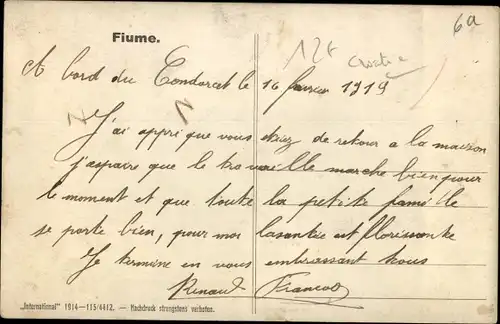 Fiume.
6a
12€
Croatie
A bord du Condorcet le 16 fevrier 1919
J'ai appri que vous etiez de retour a la maison
j'aspaire que le travaille marche bien pour
le moment et que toute la petite famille
se porte bien, pour moi la santée est florissante
Je termine en vous embrassant tous
Renaud Francois
„International" 1914—115/4412. — Nachdruck strengstens verboten.